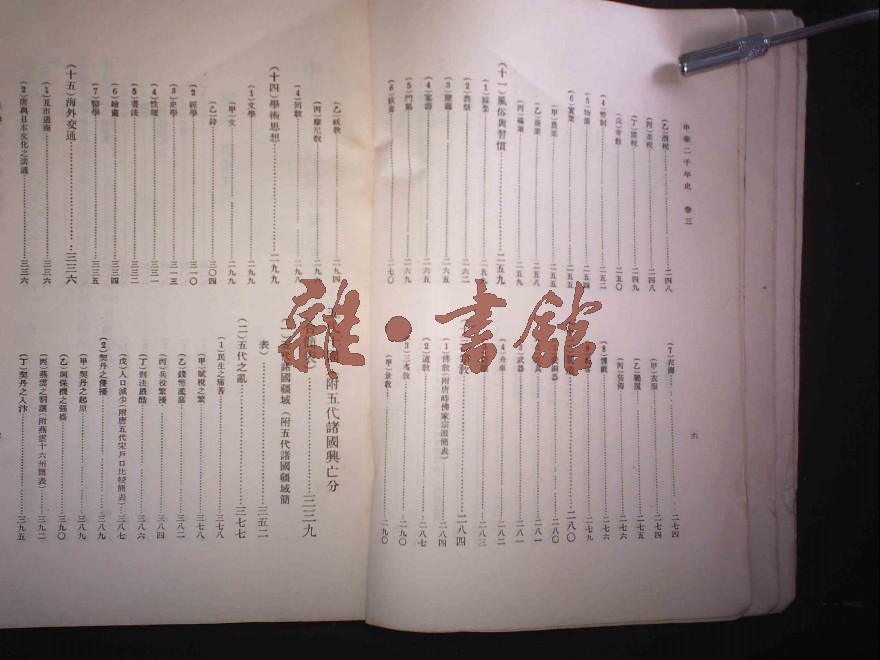 中華二千年史 卷三
六
(乙)酒稅……二四八
(丙)茶稅……二四八
(丁)雜稅……二四九
二五〇
(4)幣制……二五二
(5)物價……二五四
(6)實業……二五五
(甲)農業……二五五
二五八
二五九
(十一)風俗與習慣……二五九
二六二
二六五
二六五
(5)門第……二六九
(6)飲食……二七〇
(7)衣飾……二七四
(甲)衣服……二七四
二七五
二七六
二七九
二八〇
二八〇
二八一
二八一
(4)舟車……二八二
二八三
教……二八四
(1)佛教(附唐時佛家宗派簡表)……二八四
(2)道教……二八七
(3)三夷教……二九〇
(甲)景教……二九〇
(乙)祆教……二九四
(丙)摩尼教……二九
(4)回教……二九八
(十四)學術思想……二九九
(1)文學……二九九
(甲)文……二九九
(乙)詩……三〇四
(2)經學……三一〇
(3)史學……三一三
(4)性理……三三一
(5)書法……三三二
(6)繪畫……三三四
(7)醫學……三三五
(十五)海外交通……三三六
(1)互市通商……三三六
(2)唐與日本文化之溝通……三三六
附五代諸國興亡分
表)……三三九
五代諸國疆域(附五代諸國疆域簡
表)……三五二
(二)五代之亂……三七七
(1)民生之痛苦……三七八
(甲)賦稅之繁……三七八
(乙)錢幣濫惡……三八二
(丙)兵役繁擾……三八四
(丁)刑法嚴酷……三八六
(戊)人口減少(附唐五代宋戶口比較簡表)……三八七
(2)契丹之侵擾……三八九
(甲)契丹之起原……三八九
(乙)阿保機之强盛……三九〇
(丙)燕雲之割讓(附燕雲十六州簡表)……三九二
(丁)契丹之入汴……三九五
雜·書館